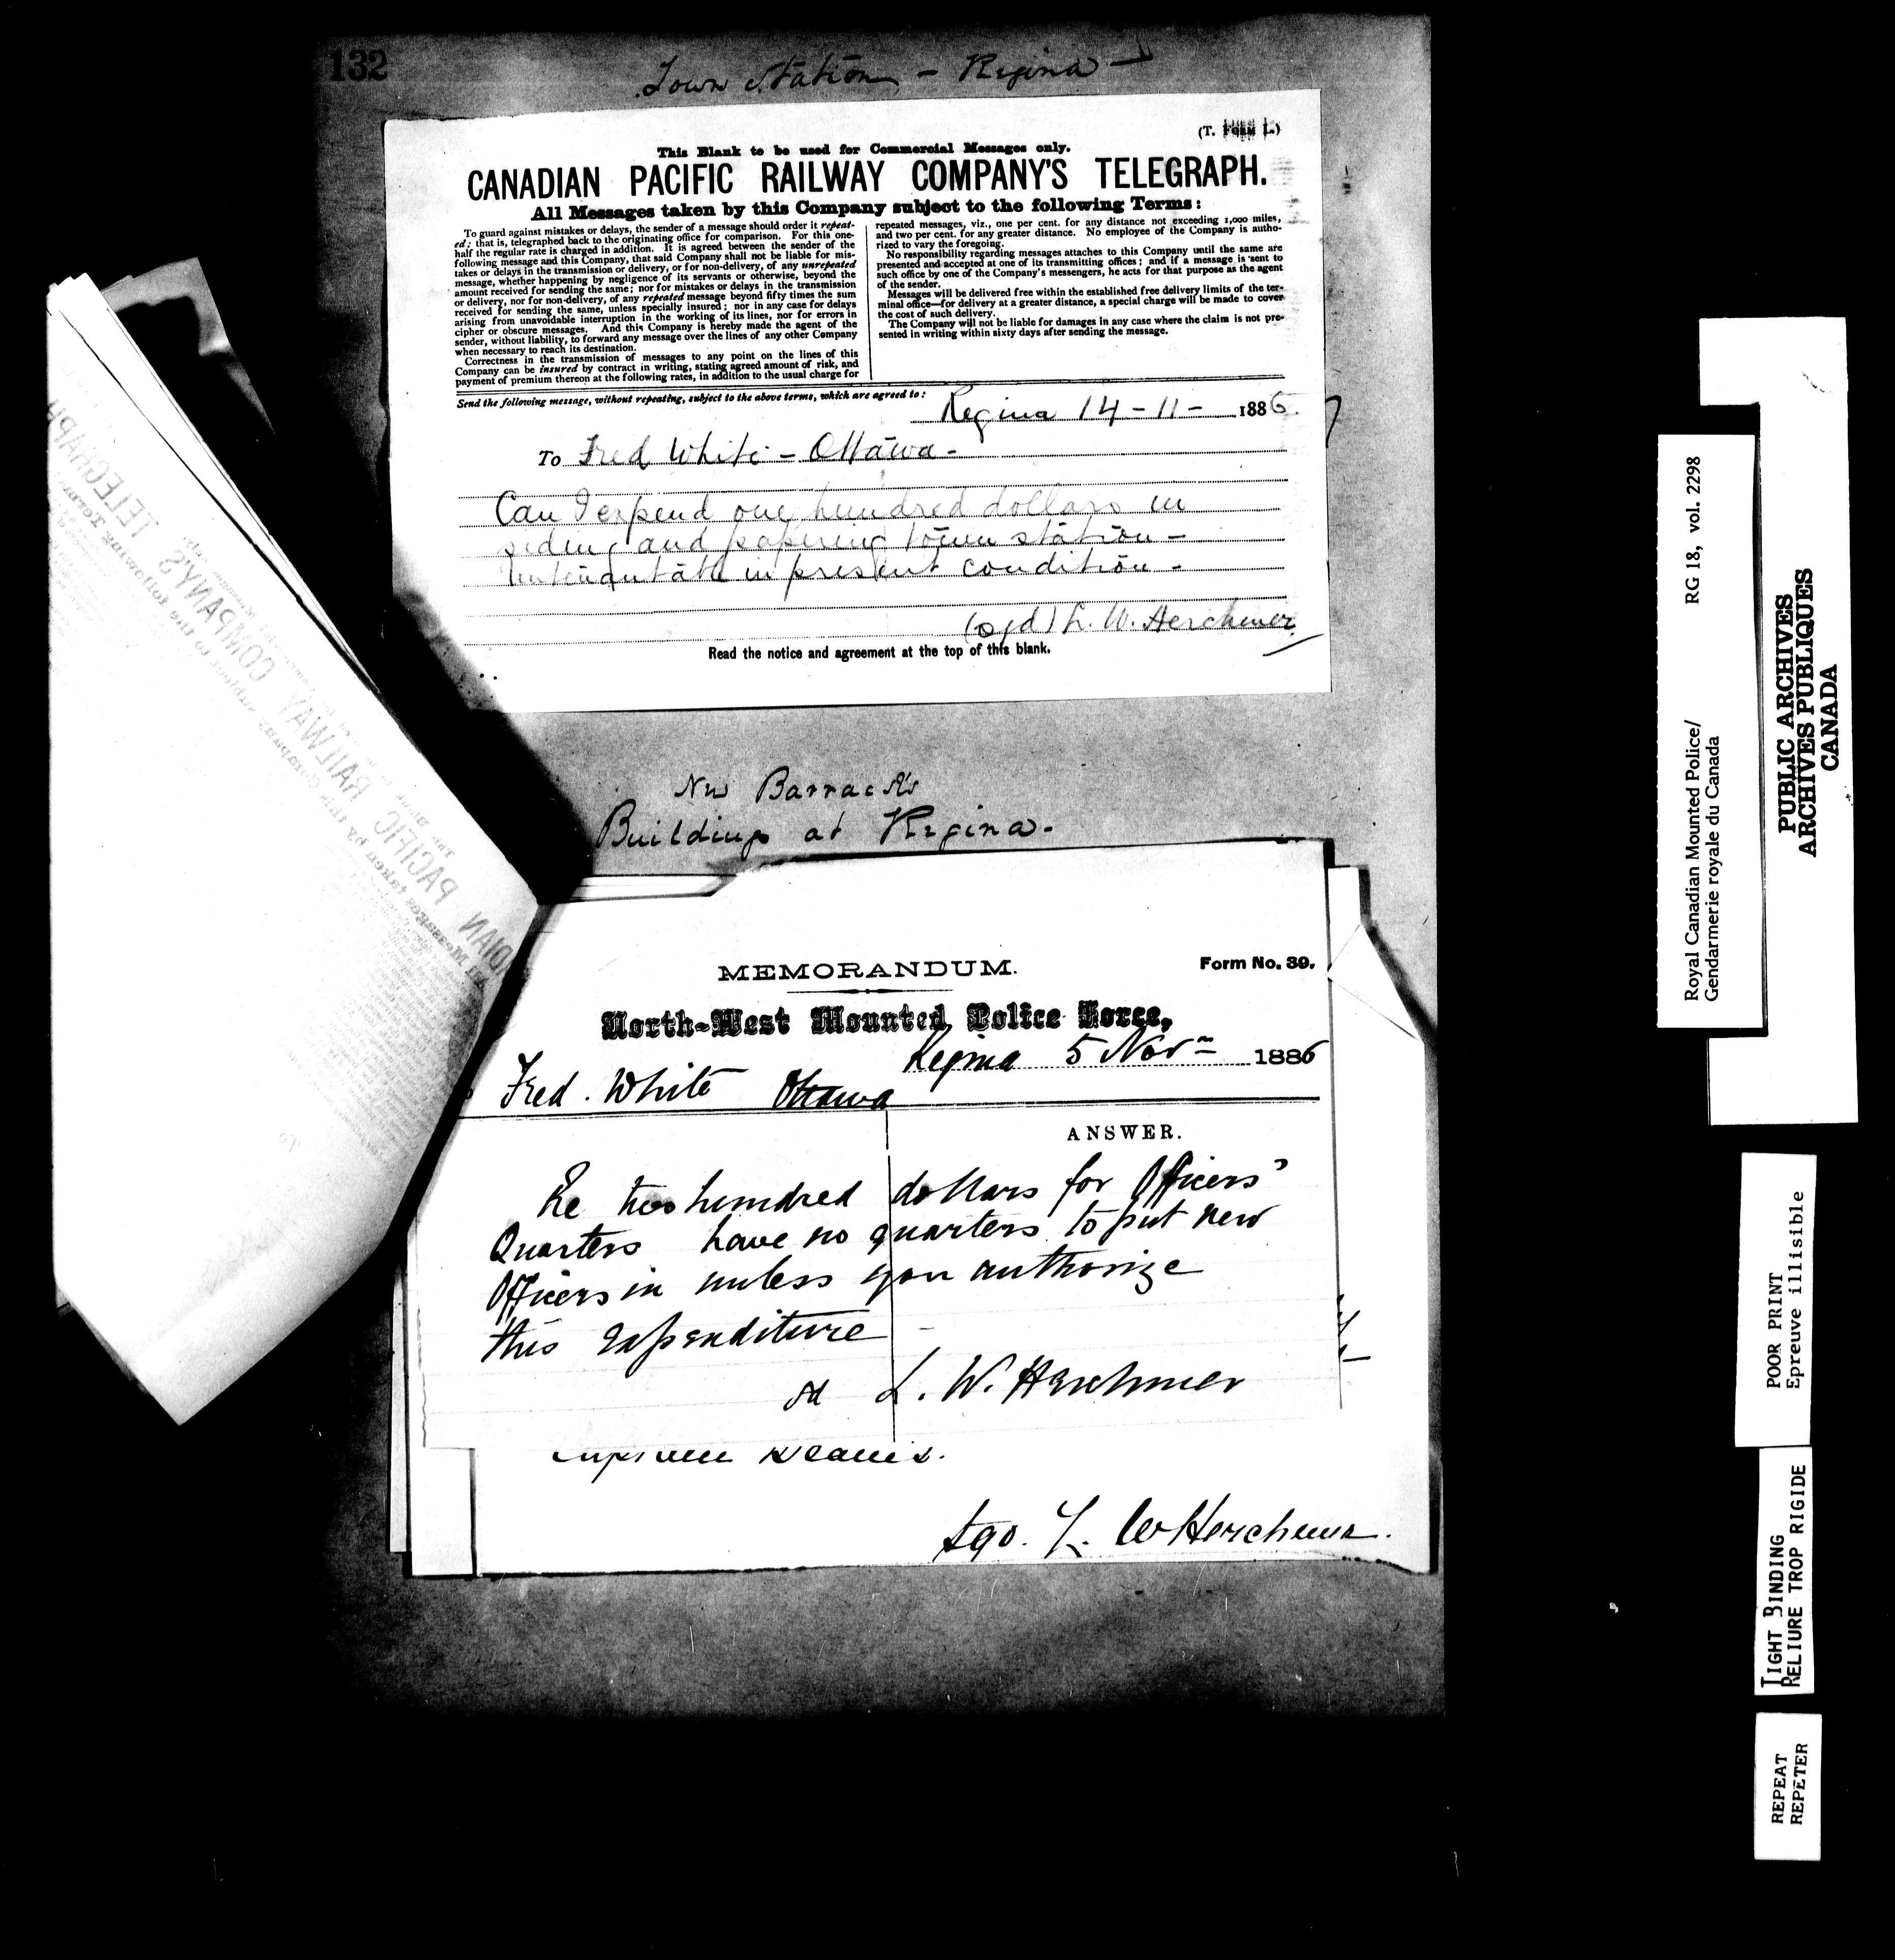 132
Town Station - Regina -
(T. Form 1.)
This Blank to be used for Commercial Messages only.
CANADIAN PACIFIC RAILWAY COMPANY'S TELEGRAPH.
All Messages taken by this Company subject to the following Terms:
To guard against mistakes or delays, the sender of a message should order it repeat-
ed; that is, telegraphed back to the originating office for comparison. For this one-
half the regular rate is charged in addition. It is agreed between the sender of the
following message and this Company, that said Company shall not be liable for mis-
takes or delays in the transmission or delivery, or for non-delivery, of any unrepeated
message, whether happening by negligence of its servants or otherwise, beyond the
amount received for sending the same; nor for mistakes or delays in the transmission
or delivery, nor for non-delivery, of any repeated message beyond fifty times the sum
received for sending the same, unless specially insured; nor in any case for delays
arising from unavoidable interruption in the working of its lines, nor for errors in
cipher or obscure messages. And this Company is hereby made the agent of the
sender, without liability, to forward any message over the lines of any other Company
when necessary to reach its destination.
Correctness in the transmission of messages to any point on the lines of this
Company can be insured by contract in writing, stating agreed amount of risk, and
payment of premium thereon at the following rates, in addition to the usual charge for
repeated messages, viz., one per cent. for any distance not exceeding 1,000 miles,
and two per cent. for any greater distance. No employee of the Company is autho-
rized to vary the foregoing.
No responsibility regarding messages attaches to this Company until the same are
presented and accepted at one of its transmitting offices; and if a message is sent to
such office by one of the Company's messengers, he acts for that purpose as the agent
of the sender.
Messages will be delivered free within the established free delivery limits of the ter-
minal office—for delivery at a greater distance, a special charge will be made to cover
the cost of such delivery.
The Company will not be liable for damages in any case where the claim is not pre-
sented in writing within sixty days after sending the message.
Send the following message, without repeating, subject to the above terms, which are agreed to:
Regina 14-11- 1886.
To Fred White - Ottawa -
Can I expend one hundred dollars in
siding and papering town station -
Untenantable in present condition -
(sgd) L. W. Herchmer
Read the notice and agreement at the top of this blank.
New Barracks
Buildings at Regina.
MEMORANDUM.
Form No. 39.
North-West Mounted Police Force,
Regina 5 Novr 1886
Fred. White Ottawa
ANSWER.
Re two hundred dollars for Officers'
Quarters have no quarters to put new
Officers in unless you authorize
this expenditure -
sd L. W. Herchmer
Sgd. L. W Herchmer.
Royal Canadian Mounted Police/ RG 18, vol. 2298
Gendarmerie royale du Canada
PUBLIC ARCHIVES
ARCHIVES PUBLIQUES
CANADA
POOR PRINT
Epreuve illisible
TIGHT BINDING
RELIURE TROP RIGIDE
REPEAT
REPETER